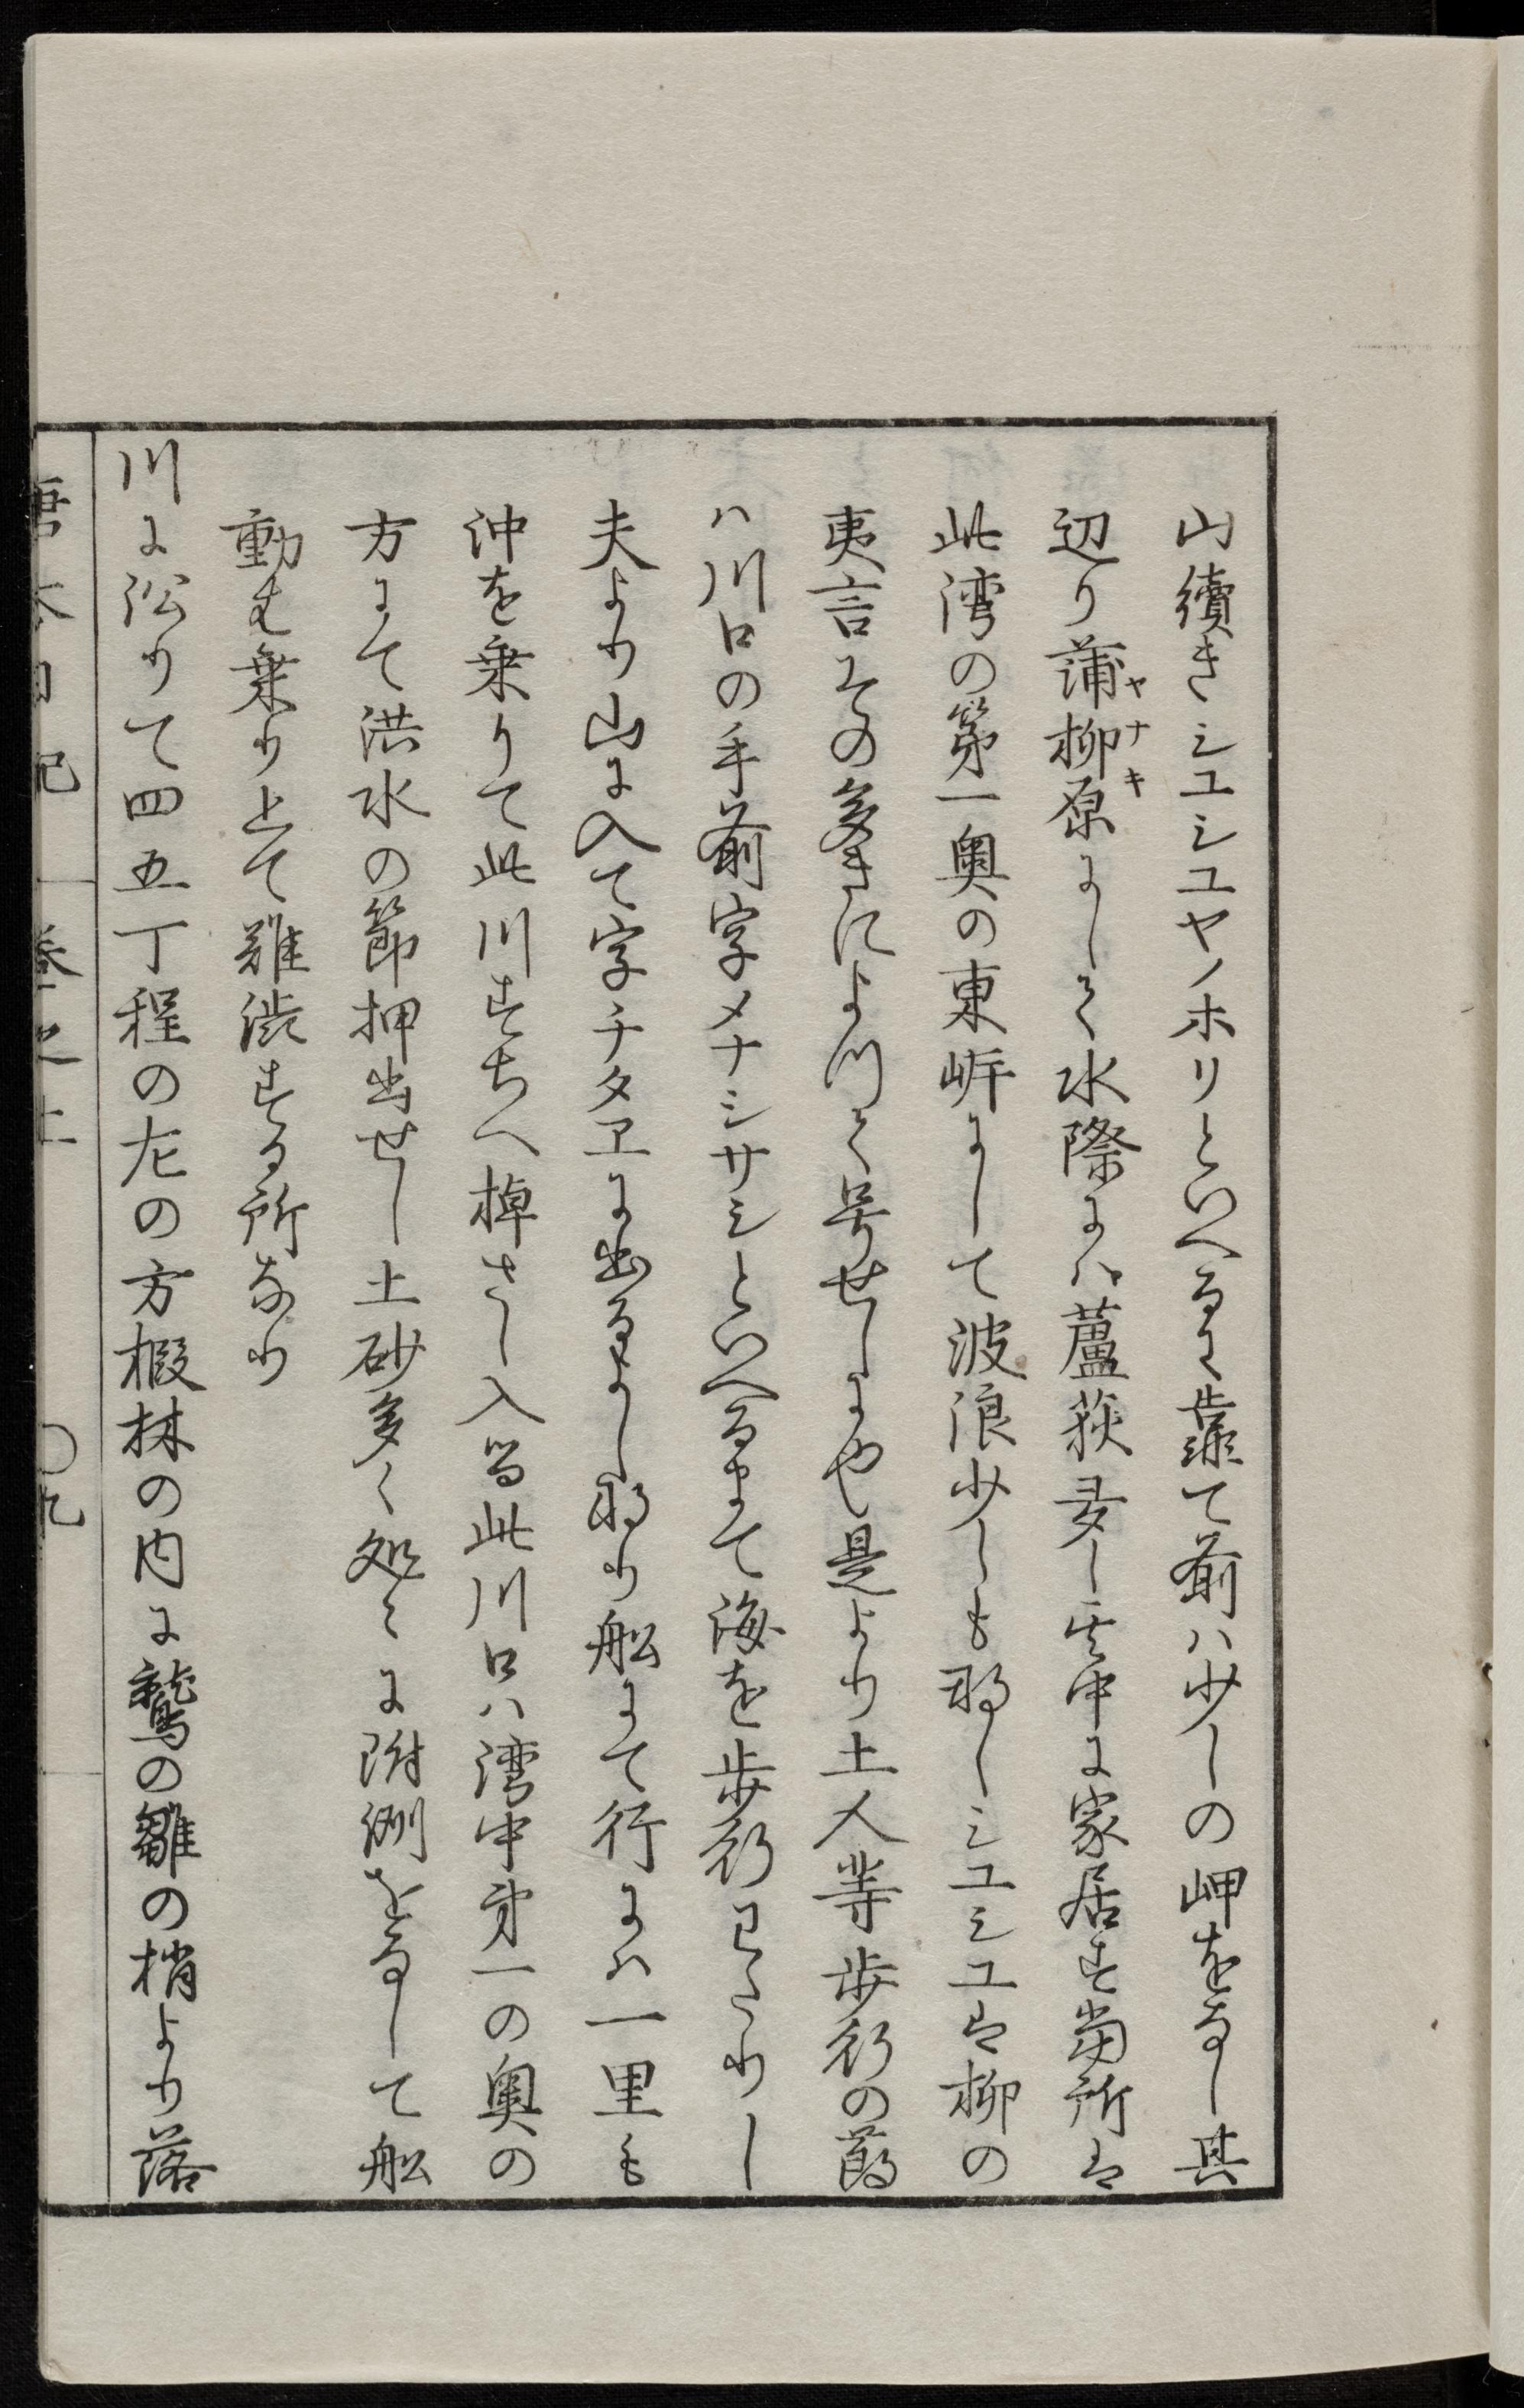 山續きシユシユヤノホリといへるに聳て前ハ少しの岬をなし其
辺り蒲柳原にして水際にハ蘆荻多し其中に家居す当所は
ヤナキ
此湾の第一奥の東岸にして波浪少しも那しシユシユは柳の
夷言その多きによつて号せしにや是より土人等歩行の節
ハ川口の手前字メナシサシといへるまて海を歩行わたりし
夫より山に入て字チタヱに出るよし那り船にて行にハ一里も
沖を乗りて此川すちへ棹さし入る此川口ハ湾中第一の奥の
方にて洪水の節押出せし土砂多く処々に附洲をなして船
動も乗り上て難渋する所なり
川に㳂りて四五丁程の左の方椴林の内に鷲の雛の梢より落
唐太日記 巻之上 〇九